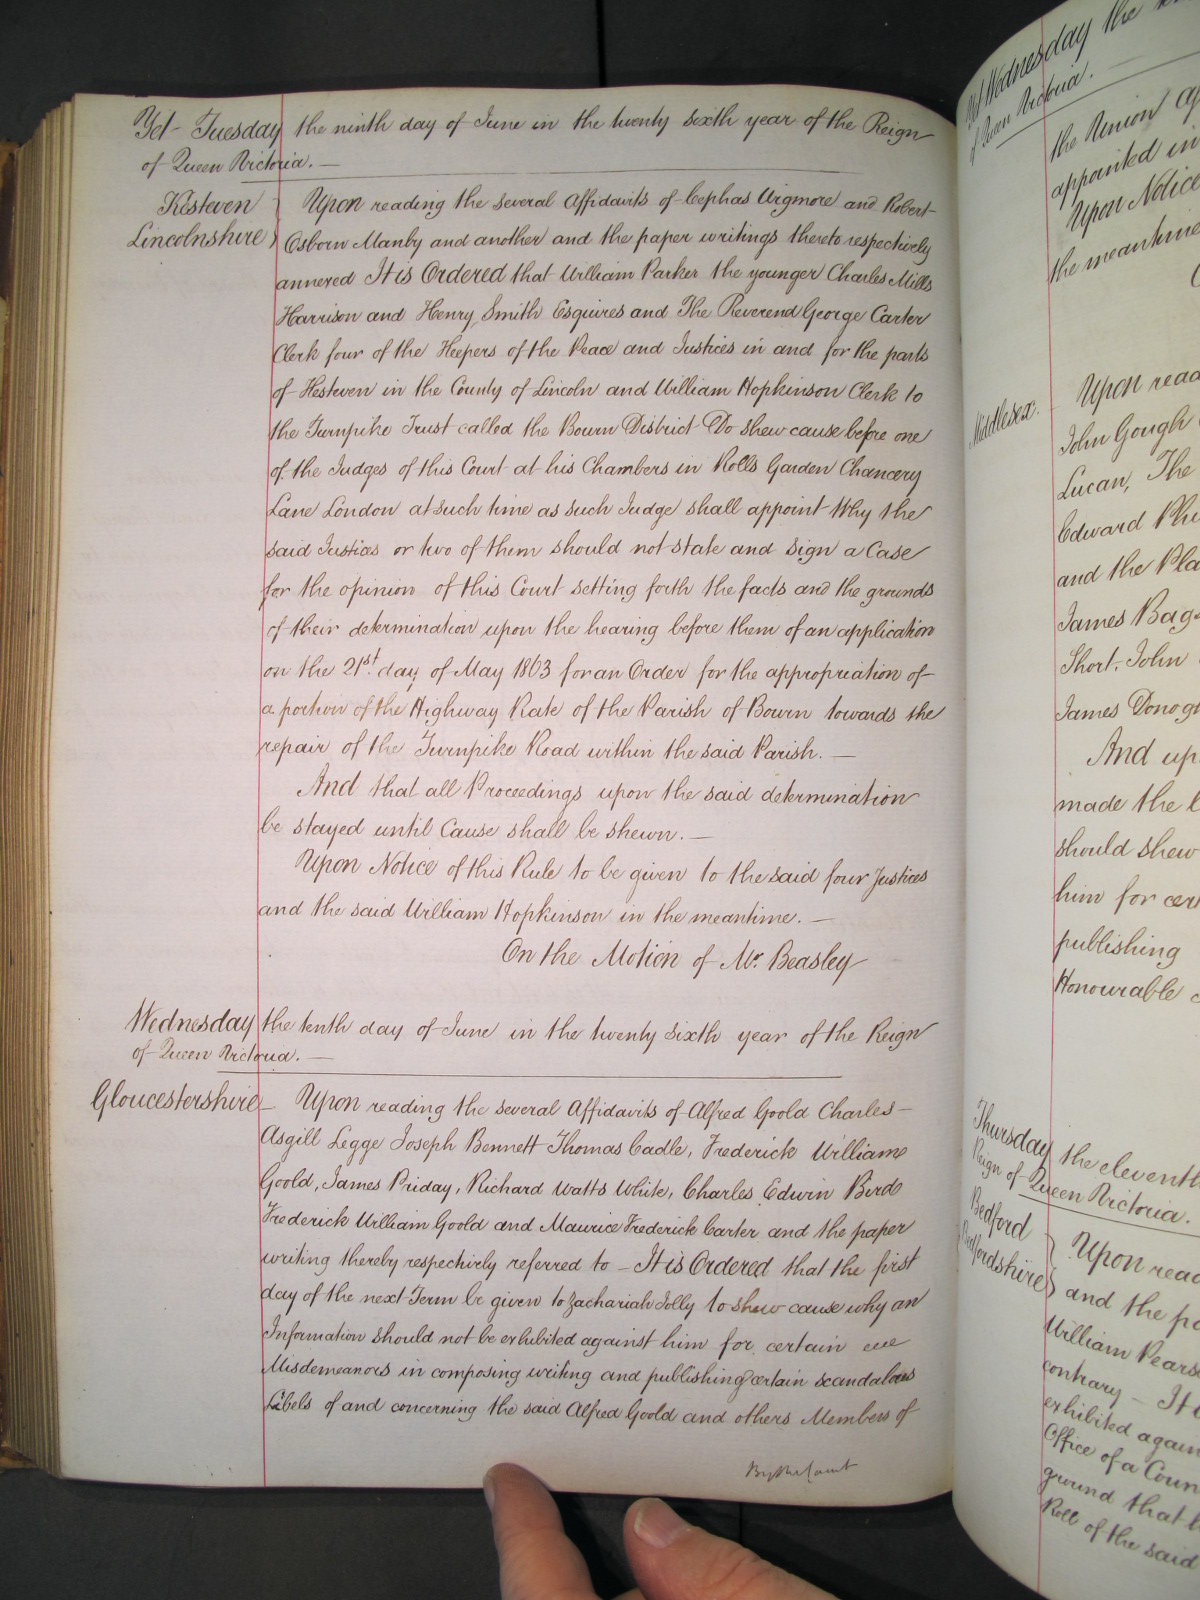 Yet Tuesday the ninth day of June in the twenty sixth year of the Reign
of Queen Victoria. —
Kesteven
Lincolnshire
Upon reading the several Affidavits of Cephas Wigmore and Robert
Osborn Manby and another and the paper writings thereto respectively
annexed It is Ordered that William Parker the younger Charles Mills
Harrison and Henry Smith Esquires and The Reverend George Carter
Clerk four of the Keepers of the Peace and Justices in and for the parts
of Kesteven in the County of Lincoln and William Hopkinson Clerk to
the Turnpike Trust called the Bourn District Do shew cause before one
of the Judges of this Court at his Chambers in Rolls Garden Chancery
Lane London at such time as such Judge shall appoint Why the
said Justices or two of them should not state and sign a Case
for the opinion of this Court setting forth the facts and the grounds
of their determination upon the hearing before them of an application
on the 21st day of May 1863 for an Order for the appropriation of
a portion of the Highway Rate of the Parish of Bourn towards the
repair of the Turnpike Road within the said Parish. —
And that all Proceedings upon the said determination
be stayed until Cause shall be shewn. —
Upon Notice of this Rule to be given to the said four Justices
and the said William Hopkinson in the meantime. —
On the Motion of Mr. Beasley
Wednesday the tenth day of June in the twenty sixth year of the Reign
of Queen Victoria. —
Gloucestershire Upon reading the several Affidavits of Alfred Goold Charles
Asgill Legge Joseph Bennett Thomas Cadle, Frederick William
Goold, James Priday, Richard Watts White, Charles Edwin Bird
Frederick William Goold and Maurice Frederick Carter and the paper
writing thereby respectively referred to — It is Ordered that the first
day of the next Term be given to Zachariah Jolly to shew cause why an
Information should not be exhibited against him for certain
Misdemeanors in composing writing and publishing certain scandalous
Libels of and concerning the said Alfred Goold and others Members of
By the Court
Yet Wednesday the
of Queen Victoria.
the Union
appointed in
Upon Notice
the meantime
Middlesex.
Upon read
John Gough
Lucan, The
Edward
and the
James
Short, John
James
And up
made the
should shew
him for cer
publishing
Honourable
Thursday the eleventh
Reign of Queen Victoria.
Bedford
Bedfordshire
Upon read
and the
William
contrary — It
exhibited again
Office of a Coun
ground that
Roll of the said